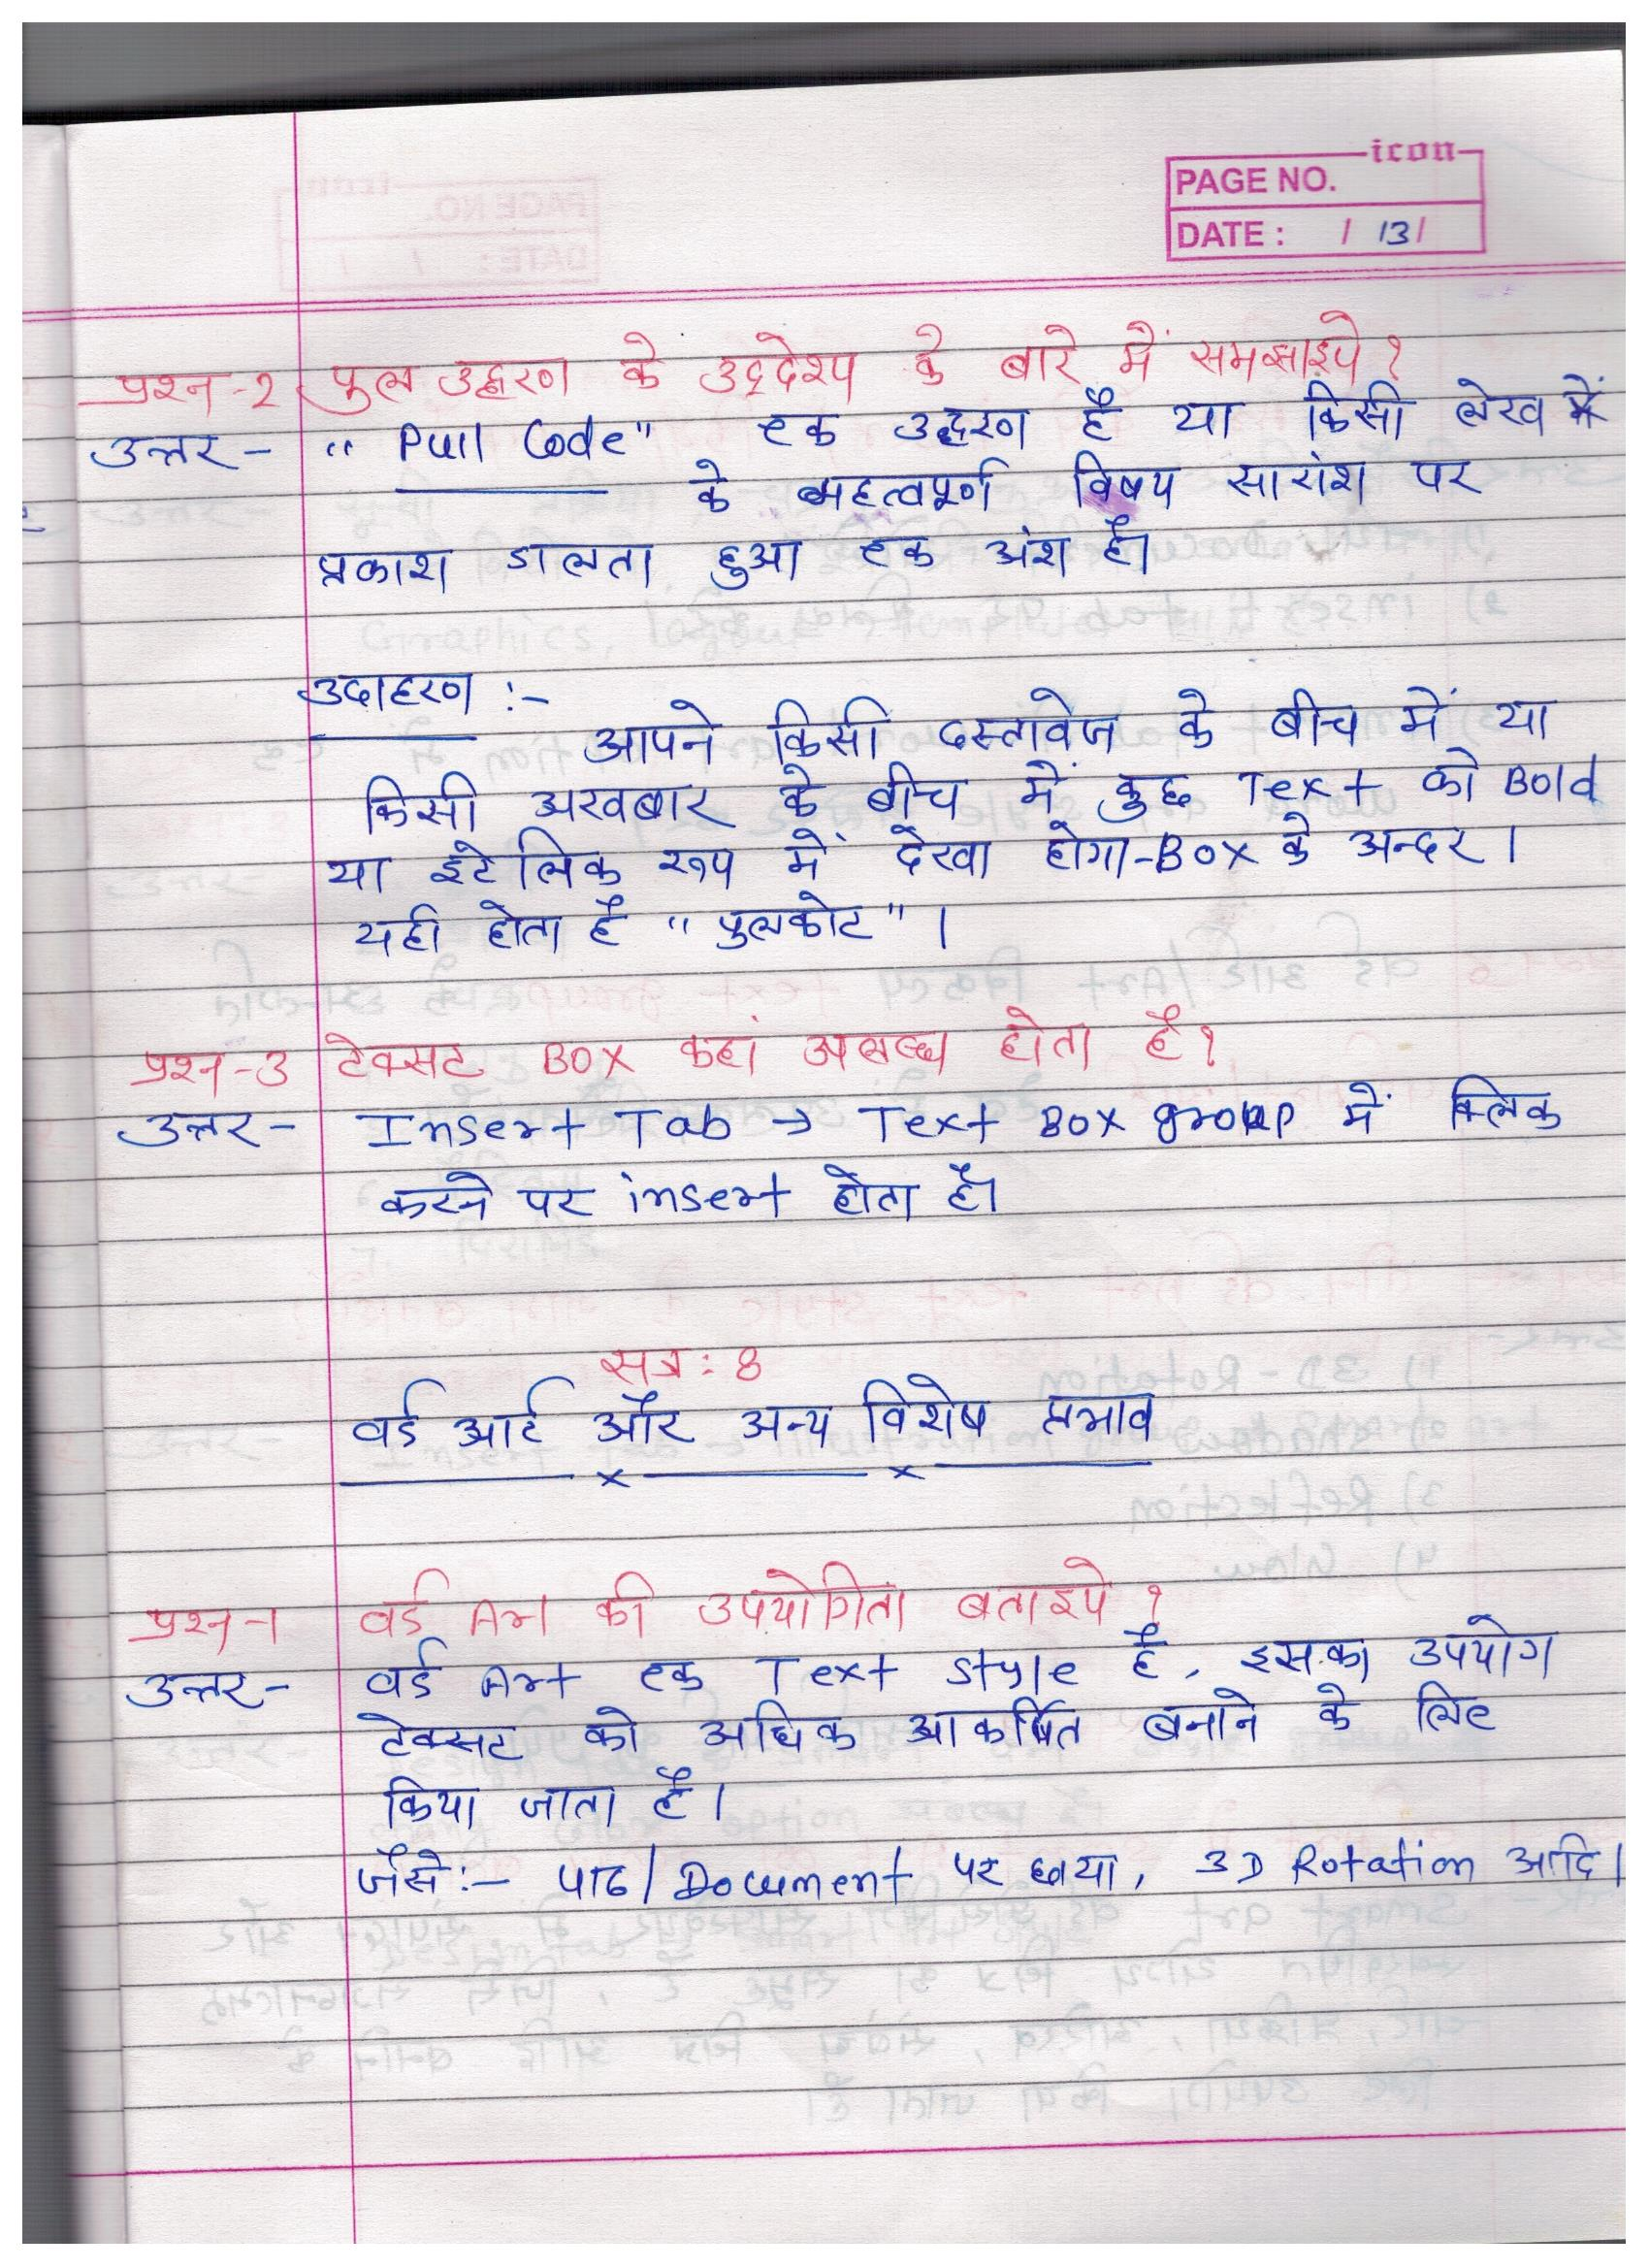 icon
PAGE NO.
DATE : / 13/
प्रश्न-2 पुल उद्धरण के उद्देश्य के बारे में समझाइये ?
उत्तर- "Pull Code" एक उद्धरण है या किसी लेख में
के महत्वपूर्ण विषय सारांश पर
प्रकाश डालता हुआ एक अंश है।
उदाहरण :-
आपने किसी दस्तावेज के बीच में या
किसी अखबार के बीच में कुछ Text को Bold
या इटेलिक रूप में देखा होगा-Box के अन्दर ।
यही होता है "पुलकोट" ।
प्रश्न-3 टेक्सट BOX कहां उपलब्ध होता है ?
उत्तर- Insert Tab → Text BOX group में क्लिक
करने पर insert होता है।
सत्र : 8
वर्ड आर्ट और अन्य विशेष प्रभाव
प्रश्न-1 वर्ड Art की उपयोगिता बताइये ?
उत्तर- वर्ड Art एक Text Style है, इसका उपयोग
टेक्सट को अधिक आकर्षित बनाने के लिए
किया जाता है ।
जैसे:- पाठ/Document पर छाया, 3D Rotation आदि।